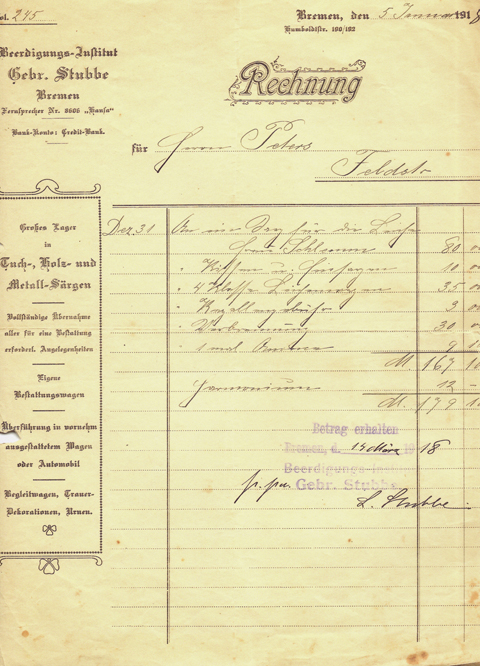 ol. 245
Bremen, den 5 Januar 1918
Humboldtstr. 190/192
Beerdigungs-Institut
Gebr. Stubbe
Bremen
Fernsprecher Nr. 8606 „Hansa“
Bank-Konto: Credit-Bank.
Rechnung
für Herrn Peters
Feldstr
Großes Lager
in
Tuch-, Holz- und
Metall-Särgen
Vollständige Übernahme
aller für eine Bestattung
erforderl. Angelegenheiten
Eigene
Bestattungswagen
Überführung in vornehm
ausgestattetem Wagen
oder Automobil
Begleitwagen, Trauer-
Dekorationen, Urnen.
Dez. 31 An ein Sarg für die Leiche
Frau 80 00
" Kissen u. 10 00
" 4 Klasse Leichenwagen 35 00
" 3 00
" Verbrennung 30 00
" 1 mal 9
M. 167
Harmonium 12 –
M. 179
Betrag erhalten
Bremen, d. 14 März 1918
Beerdigungs-Institut
Gebr. Stubbe.
p. pa. L. Stubbe